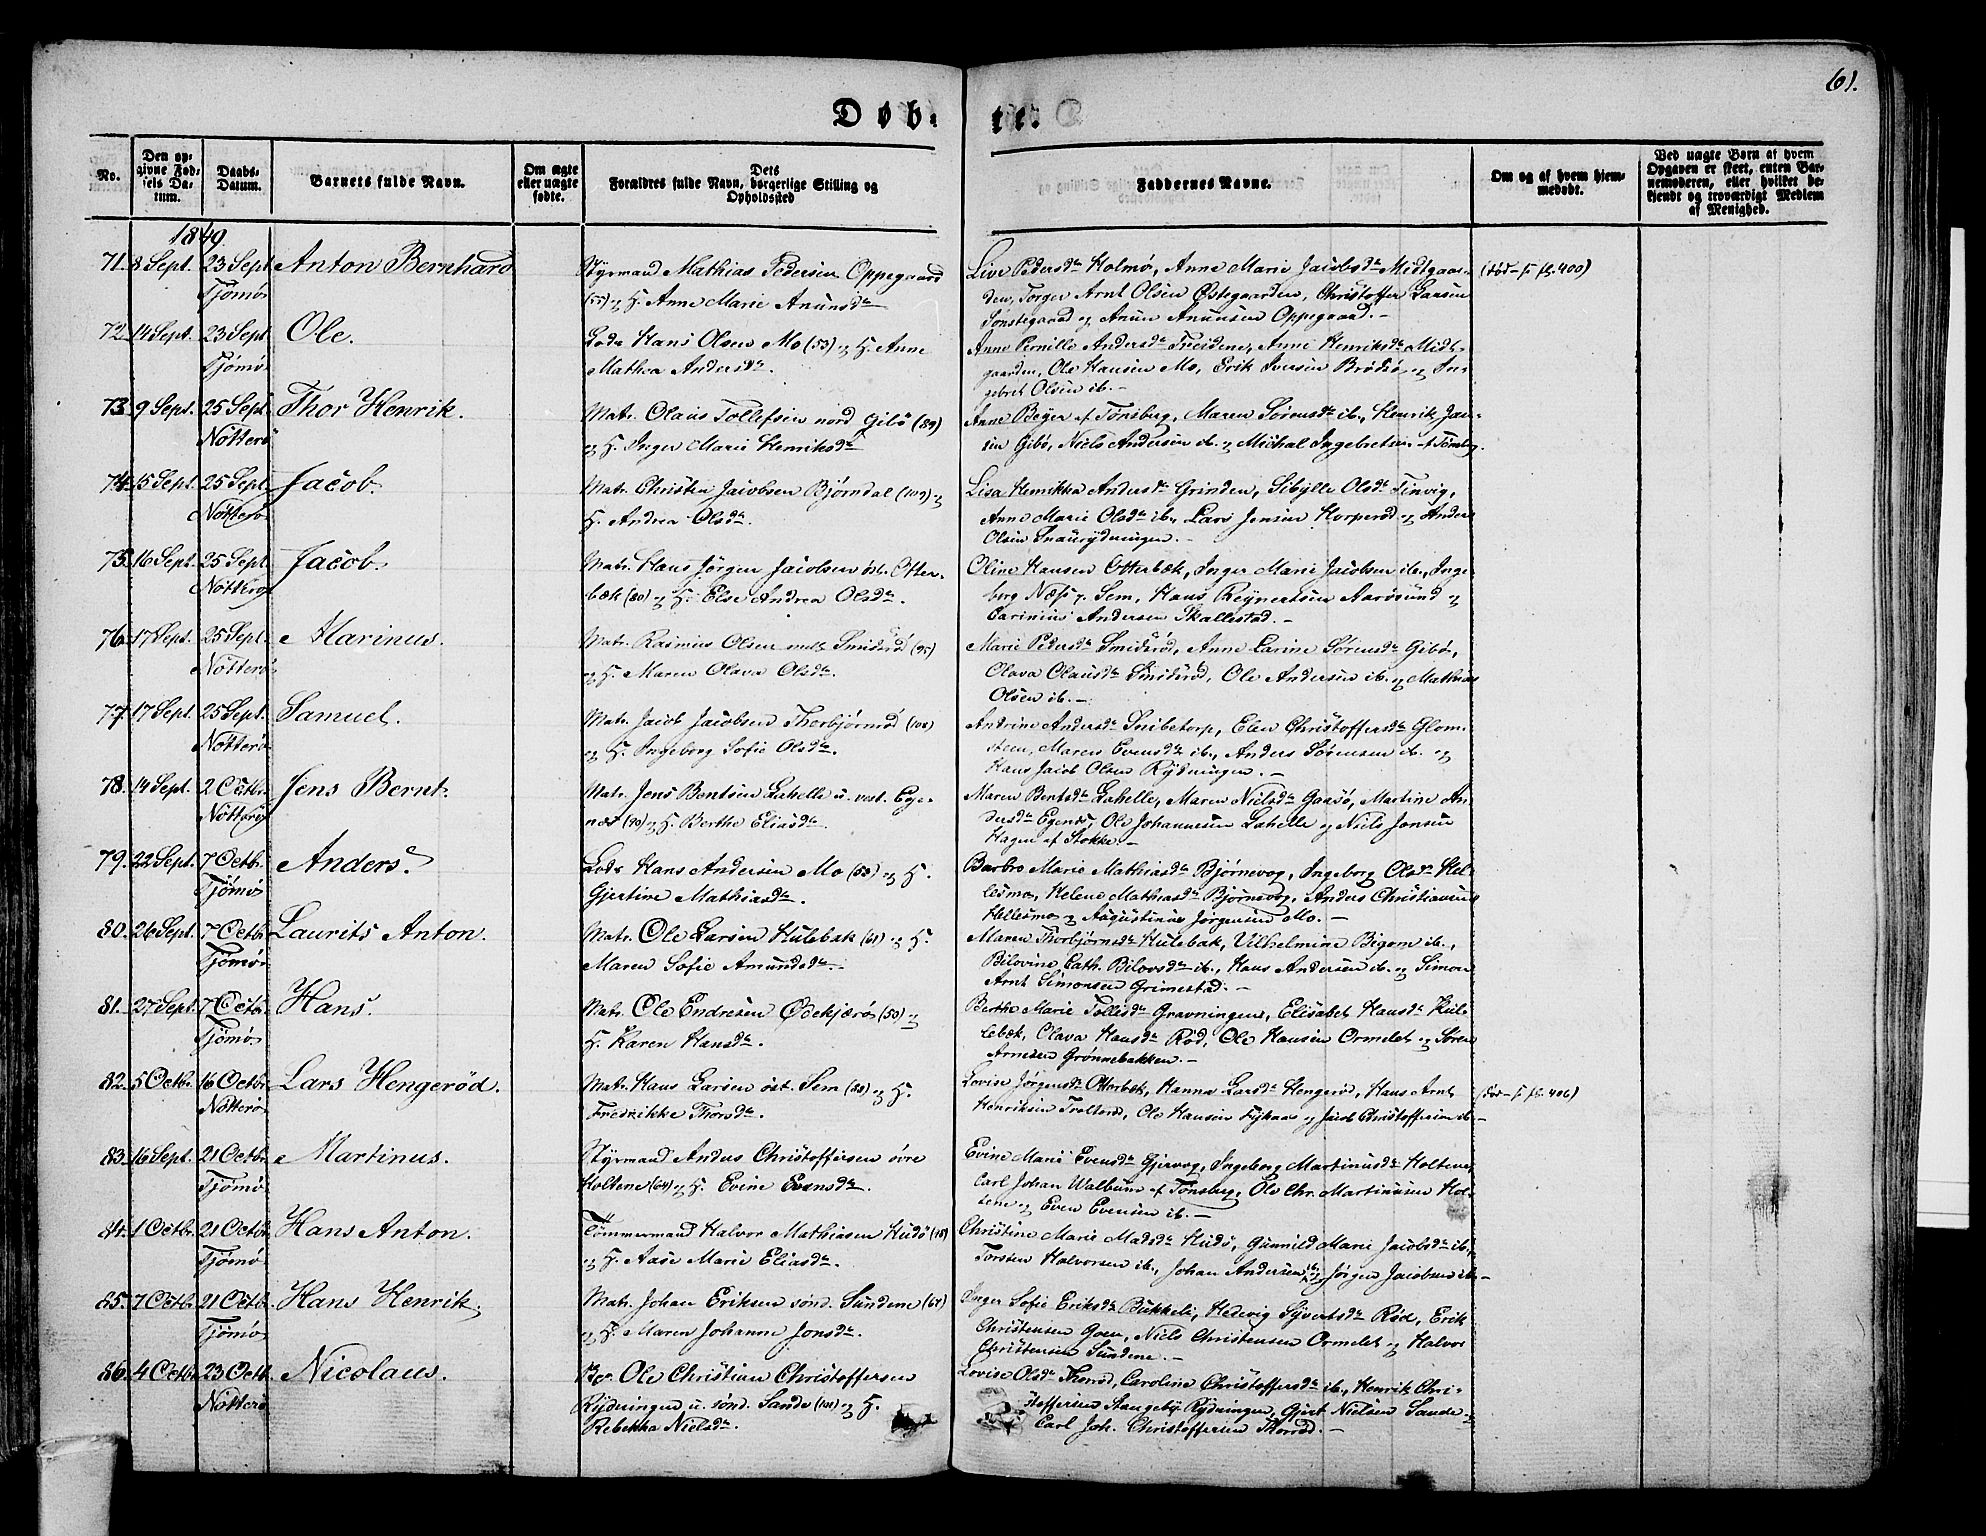 61.
Døbte.
No.
Den opgivne Fødsels Datum.
Daabs-Datum.
Barnets fulde Navn.
Om ægte eller uægte fødte.
Dets Forældres fulde Navn, borgerlige Stilling og Opholdssted
Faddernes Navne.
Om og af hvem hjemmedøbt.
Ved uægte Børn af hvem Opgaven er skeet, enten Barnemoderen, eller hvilket bekjendt og troværdigt Medlem af Menighed.
1849.
71. 8 Sept. 23 Sept Tjömø Anton Bernhard
Styrmand Mathias Pedersen Oppegaard
(55) og H. Anne Marie Anunsdr
Live Pedersdr Holmø, Anne Marie Jacobsdr Midtgaar-
den, Torger Arnt Olsen Østegaarden, Christoffer Larsen
Sønstegaard og Anun Anunsen Oppegaard.—
(død — f. fl. 400)
72. 14 Sept. 23 Sept Tjömø Ole.
Lods Hans Olsen Mo (53) og H. Anne
Mathea Andersdr.
Anne Pernille Andersdr Treidene, Anne Henriksdr Midt-
gaarden, Ole Hansen Mo, Erik Iversen Brødsø og In-
gebret Olsen ib.—
73. 9 Sept. 25 Sept. Nötterö Thor Henrik.
Matr. Olaus Tollefsen nord Gibø (89)
og H. Inger Marie Henriksdr
Anne Beyer af Tønsberg, Maren Sørensdr ib., Henrik Jan-
sen Gibø, Niels Andersen ib. og Michal Ingebretsen af Tønsbg.
74. 15 Sept. 25 Sept. Nötterø Jacob.
Matr. Christen Jacobsen Bjørndal (109) og
H. Andrea Olsdr.
Lisa Henrikka Andersdr Grinden, Sibylle Olsdr Tinvig,
Anne Marie Olsdr ib., Lars Jensen Horperød og Anders
Olsen Snaurydningen.—
75. 16 Sept. 25 Sept. Nötterø Jacob.
Matr. Hans Jørgen Jacobsen öst. Otter-
bæk (80) og H. Else Andrea Olsdr.
Oline Hansen Otterbæk, Inger Marie Jacobsen ib., Inge-
borg Næss p. Sem, Hans Reynertsen Aarøsund og
Carinius Andersen Skallestad.—
76. 17 Sept. 25 Sept. Nötterø Marinus.
Matr. Rasmus Olsen mell. Smiderød (95)
og H. Maren Olava Olsdr.
Marie Pedersdr Smiderød, Anne Larine Sørensdr Gibø,
Olava Olausdr Smiderød, Ole Andersen ib. og Mathias
Olsen ib.—
77. 17 Sept. 25 Sept. Nötterø Samuel.
Matr. Jacob Jacobsen Thorbjørnrød (108)
og H. Ingeborg Sofie Olsdr.
Andrine Andersdr Snibetorp, Elen Christoffersdr Glom-
stein, Maren Evensdr ib., Anders Sørensen ib. og
Hans Jacob Olsen Rydningen.—
78. 14 Sept. 2 Octbr. Nötterø Jens Bernt.
Matr. Jens Bentsen Lahelle u. vest. Ege-
næs (70) og H. Berthe Eliasdr.
Maren Bentsdr Lahelle, Maren Nielsdr Goasø, Martine An-
dersdr Egenes, Ole Johannesen Lahelle og Niels Jonsen
Hagen af Stokke.—
79. 22 Sept. 7 Octbr. Tjömø Anders.
Lods Hans Andersen Mo (53) og H.
Gjertine Mathiasdr.
Barbro Marie Mathiasdr Bjørnevog, Ingeborg Olsdr Hel-
lesmo, Helene Mathiasdr Bjørnevog, Anders Christiansen
Hellesmo og Augustinus Jørgensen Mo.—
80. 26 Sept. 7 Octbr. Tjömø Laurits Anton.
Matr. Ole Larsen Hulebak (61) og H.
Maren Sofie Amundsdr.
Maren Thorbjørnsdr Hulebak, Vilhelmine Bigom ib.,
Bilovine Cath. Bilovsdr ib., Hans Andersen ib. og Simon
Arnt Simonsen Grimestad.—
81. 27 Sept. 7 Octbr. Tjömø Hans.
Matr. Ole Endresen Ødekjærø (50) og
H. Karen Hansdr.
Berthe Marie Tollefsdr Gravningene, Elisabet Hansdr Hul-
lebæk, Olava Hansdr Rød, Ole Hansen Ormelet og Søren
Arnesen Grønnebakken.—
82. 5 Octbr. 16 Octbr. Nötterø Lars Hengerød.
Matr. Hans Larsen öst. Sem (88) og H.
Fredrikke Thorsdr.
Lovise Jørgensdr Otterbæk, Hanna Larsdr Hengerød, Hans Arnt
Henriksen Trolterød, Ole Hansen og Jacob Christoffersen ib.—
(død — f. fl. 406)
83. 16 Sept. 21 Octbr. Tjömø Martinus.
Styrmand Anders Christoffersen övre
Holtene (64) og H. Evine Evensdr.
Evine Marie Evensdr Gjervog, Ingeborg Martinusdr Holtene,
Carl Johan Walbum af Tønsberg, Ole Chr. Martinusen Hol-
tene og Even Evensen ib.—
84. 1 Octbr. 21 Octbr. Tjömø Hans Anton.
Tømmermand Halvor Mathiasen Hudø (78)
og H. Aase Marie Eliasdr.
Christine Marie Madsdr Hudø, Gunnild Marie Jacobsdr ib.,
Torsten Halvorsen ib., Johan Andersen ib. og Jørgen Jacobsen ib.—
85. 7 Octbr. 21 Octbr. Tjömø Hans Henrik.
Matr. Johan Eriksen sönd. Sundene (67)
og H. Maren Johanne Jonsdr.
Inger Sofie Eriksdr Bukkeli, Hedevig Syvertsdr Rød, Erik
Christensen Goen, Niels Christensen Ormelet og Halvor
Christensen Sundene.—
86. 4 Octbr. 23 Octb. Nötterø Nicolaus.
Bgr. Ole Christian Christoffersen
Rydningen u. sönd. Sande (101) og H.
Rebekka Nielsdr.
Lovise Olsdr Thorrød, Caroline Christoffersdr ib., Henrik Chri-
stoffersen Stangeby Rydningen, Gjert Nielsen Sande og
Carl Joh. Christoffersen Thorrød.—